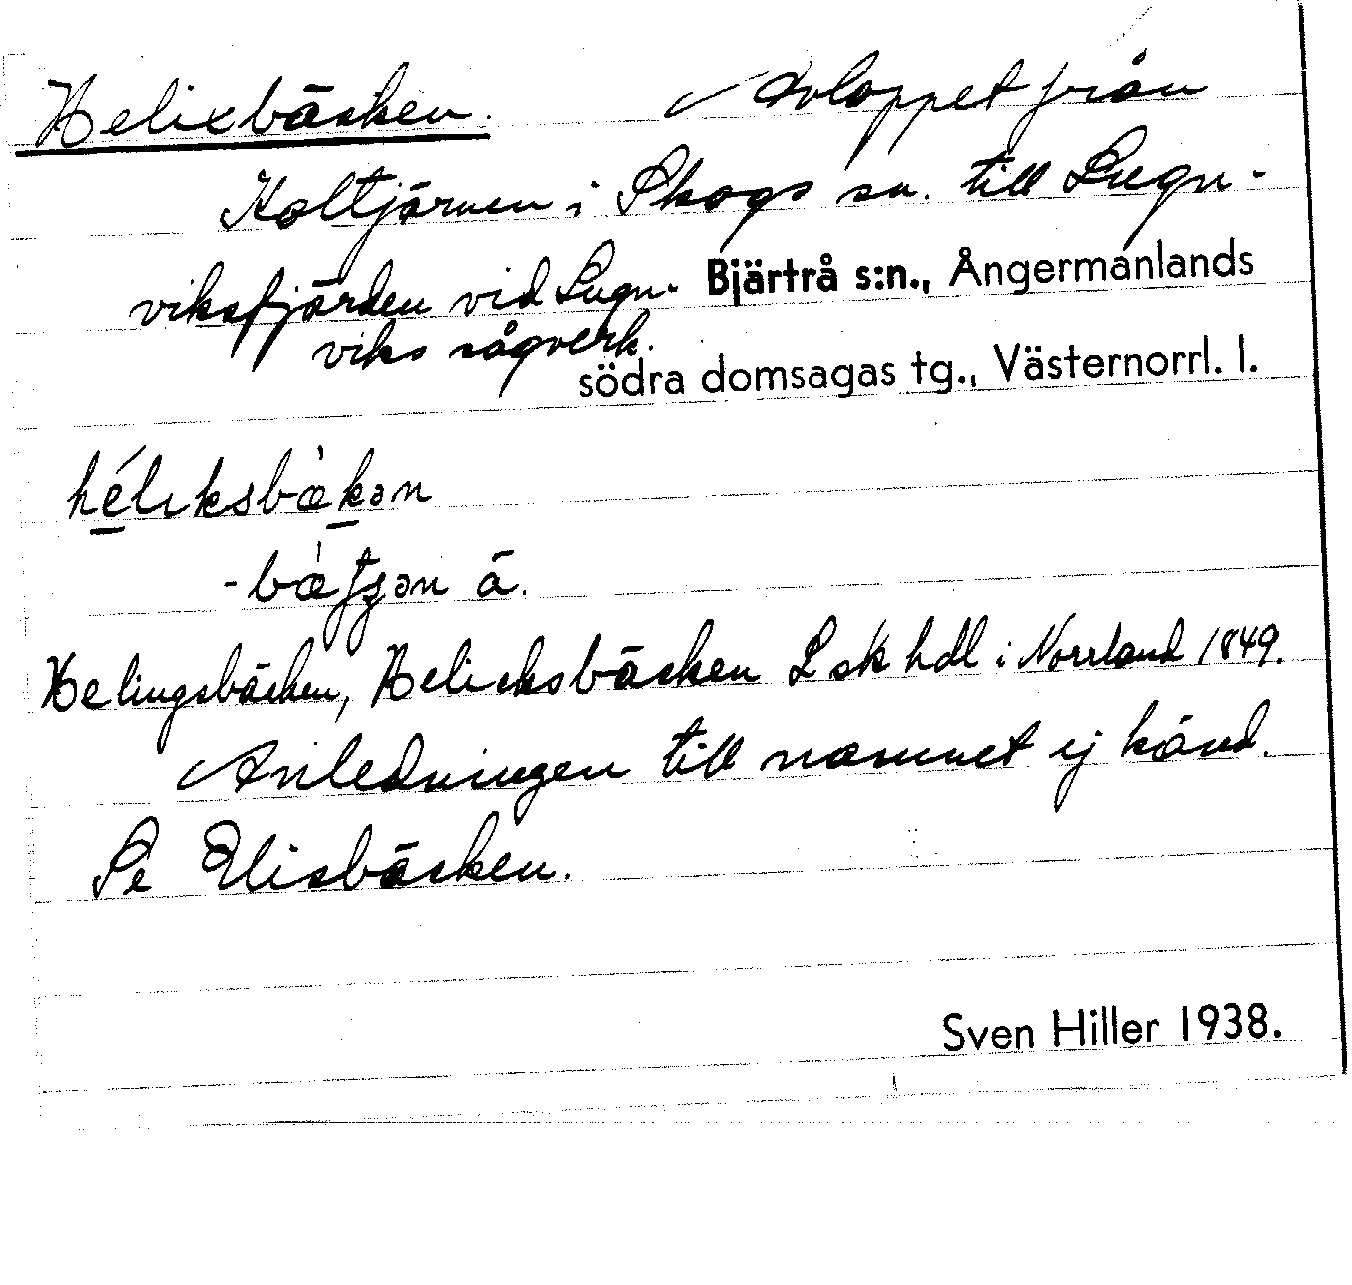 Helixbäcken. Avloppet från
Koltjärnen i Skogs sn. till Lugn-
viksfjärden vid Lugn- Bjärtrå s:n., Ångermanlands
viks sågverk.
södra domsagas tg., Västernorrl. l.
héliksbækən
ä.
Helingsbäcken, Helicksbäcken L sk hdl i Norrland 1849.
Anledningen till namnet ej känd.
Se Elisbäcken.
Sven Hiller 1938.